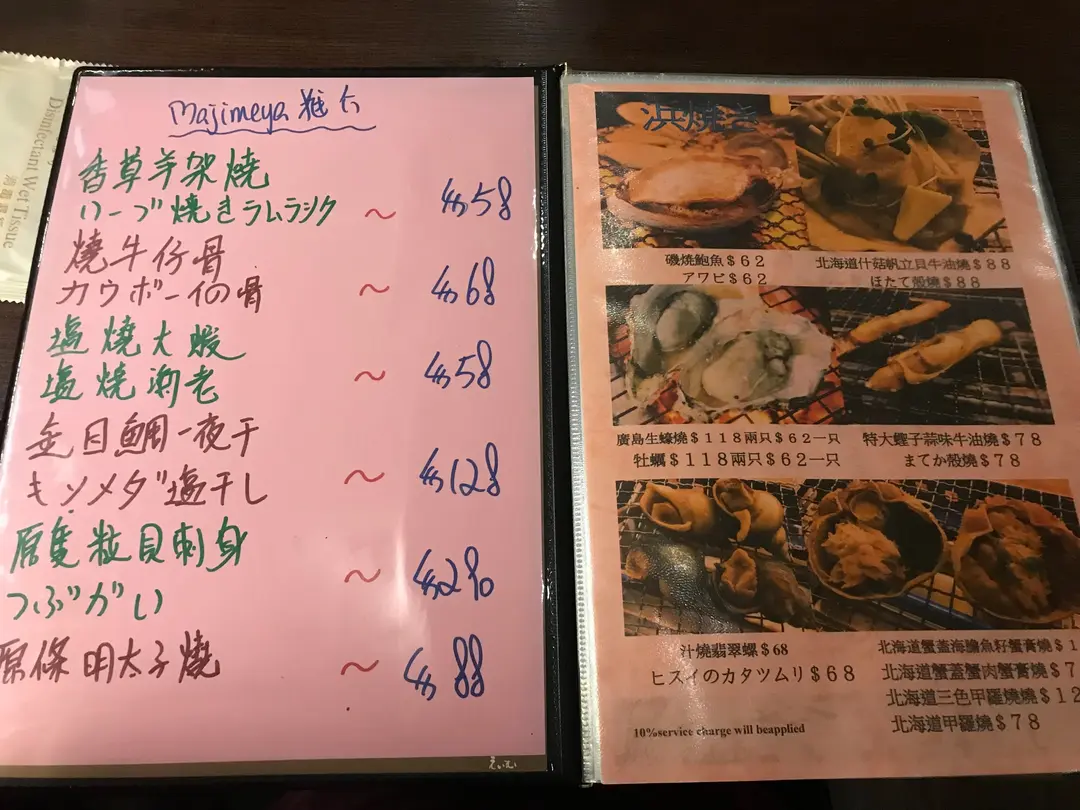 Disinfectant Wet Tissue
Majimeya 推介
香草羊架燒
ハーブ焼きラムラシク ~ $58
燒牛仔骨
カウボーイの骨 ~ $68
塩燒大蝦
塩焼海老 ~ $58
金目鯛一夜干
キンメダ塩干し ~ $128
原隻粒貝刺身
つぶがい ~
原條明太子燒 ~ $88
浜焼き
磯燒鮑魚$62
アワビ$62
北海道什菇帆立貝牛油燒$88
ほたて殻燒$88
廣島生蠔燒$118兩只$62一只
牡蠣$118兩只$62一只
特大蟶子蒜味牛油燒$78
まてか殻燒$78
汁燒翡翠螺$68
ヒスイのカタツムリ$68
北海道蟹蓋海膽魚籽蟹膏燒$1
北海道蟹蓋蟹肉蟹膏燒$7
北海道三色甲羅燒燒$12
北海道甲羅燒$78
10%service charge will beapplied